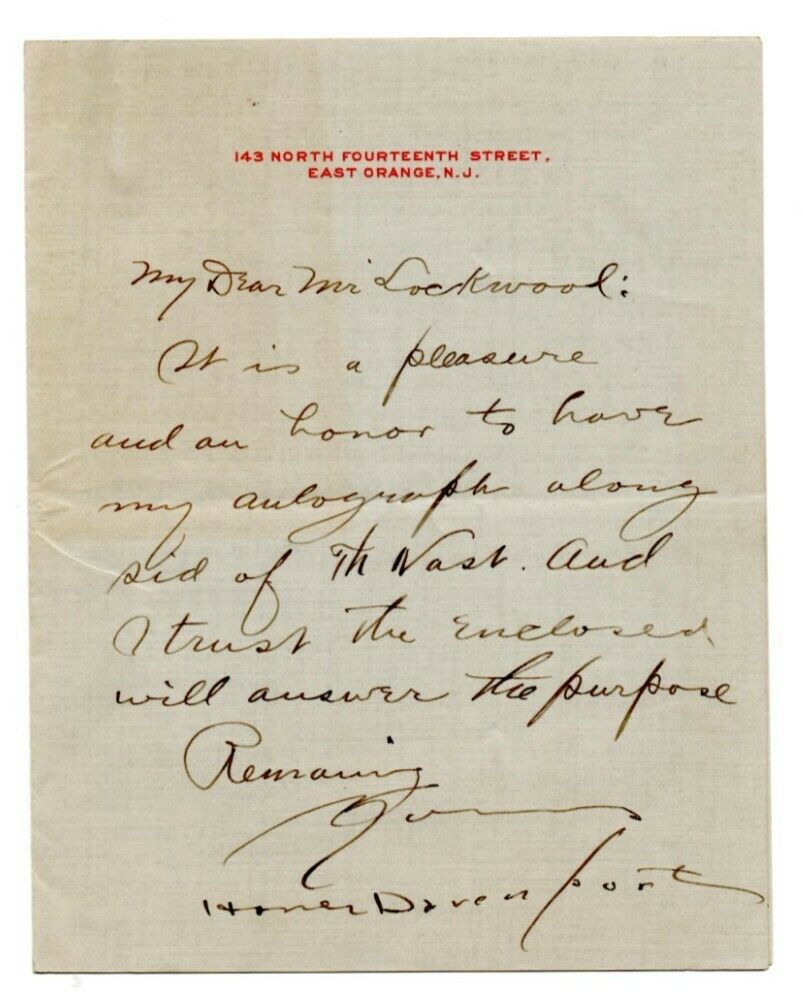 143 NORTH FOURTEENTH STREET,
EAST ORANGE, N.J.
My Dear Mr Lockwood:
It is a pleasure
and an honor to have
my autograph along
sid of Th Nast. And
I trust the enclosed
will answer the purpose
Remaining
Yours
Homer Davenport